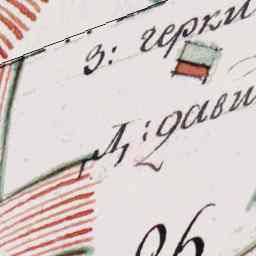 з: черки
Л: дави
26